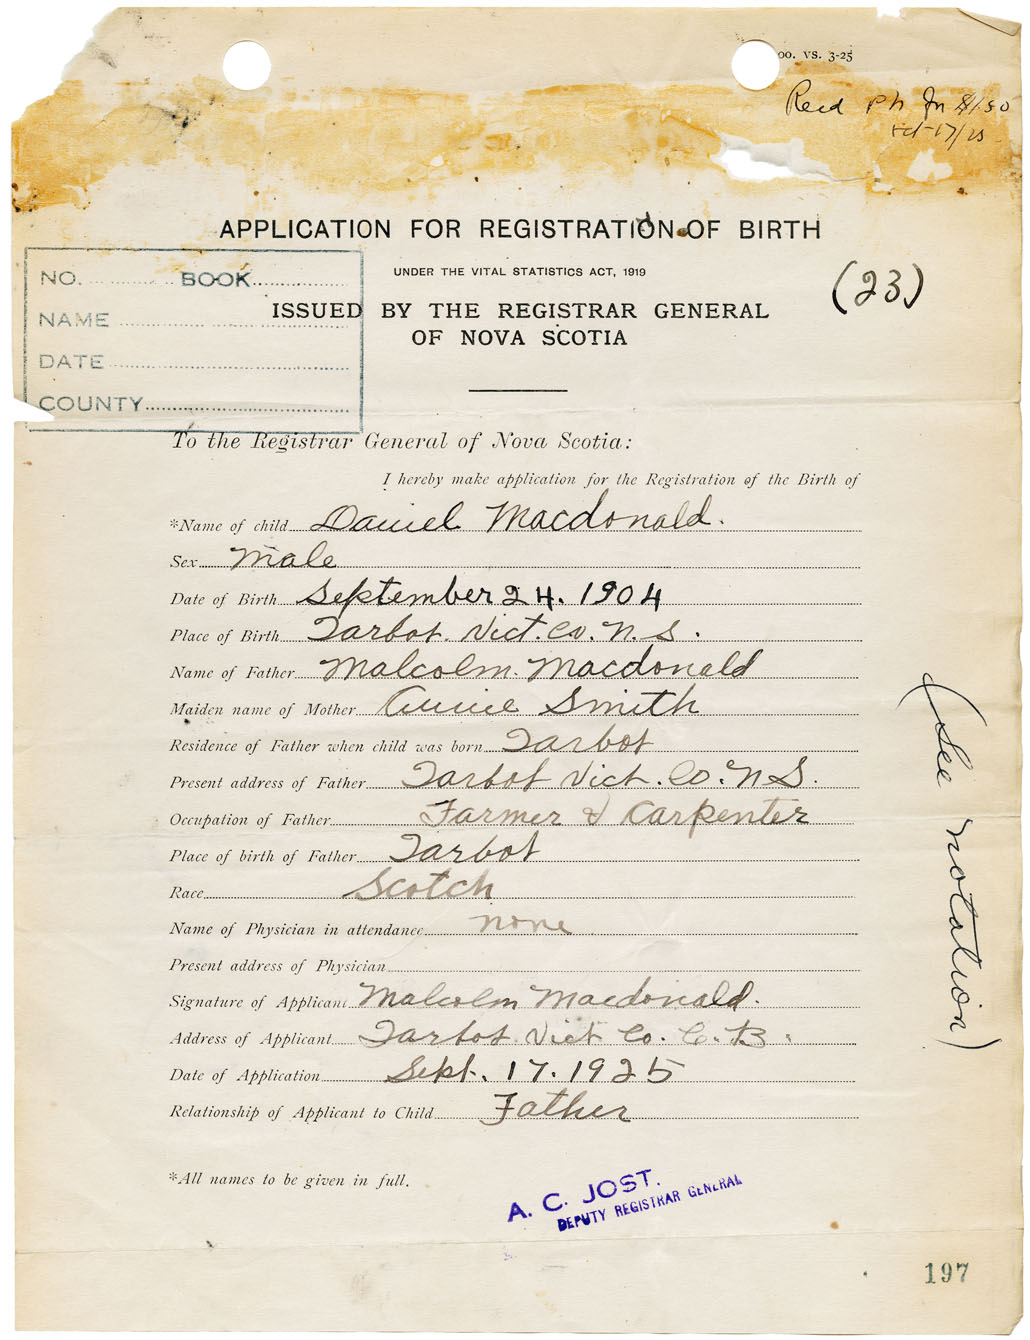 00. VS. 3-25
Recd Ph Jn $1.50
17/25
APPLICATION FOR REGISTRATION OF BIRTH
UNDER THE VITAL STATISTICS ACT, 1919
(23)
ISSUED BY THE REGISTRAR GENERAL
OF NOVA SCOTIA
NO. BOOK
NAME
DATE
COUNTY
To the Registrar General of Nova Scotia:
I hereby make application for the Registration of the Birth of
*Name of child Daniel Macdonald.
Sex Male
Date of Birth September 24. 1904
Place of Birth Tarbot. Vict. Co. N. S.
Name of Father Malcolm. Macdonald
Maiden name of Mother Annie Smith
Residence of Father when child was born Tarbot
Present address of Father Tarbot Vict. Co. N S.
Occupation of Father Farmer & Carpenter
Place of birth of Father Tarbot
Race Scotch
Name of Physician in attendance none
Present address of Physician
Signature of Applicant Malcolm Macdonald.
Address of Applicant Tarbot. Vict Co. C. B.
Date of Application Sept. 17. 1925
Relationship of Applicant to Child Father
(See notation)
*All names to be given in full.
A. C. JOST.
DEPUTY REGISTRAR GENERAL
197